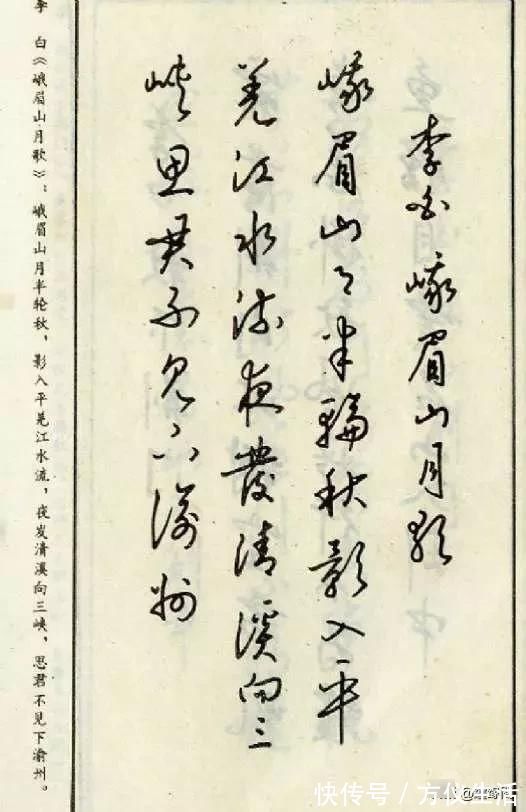 李白峨眉山月歌
峨眉山月半輪秋影入平
羌江水流夜發清溪向三
峡思君不见下渝州
李 白《峨眉山月歌》：峨眉山月半轮秋，影入平羌江水流，夜发清溪向三峡，思君不见下渝州。
快传号/